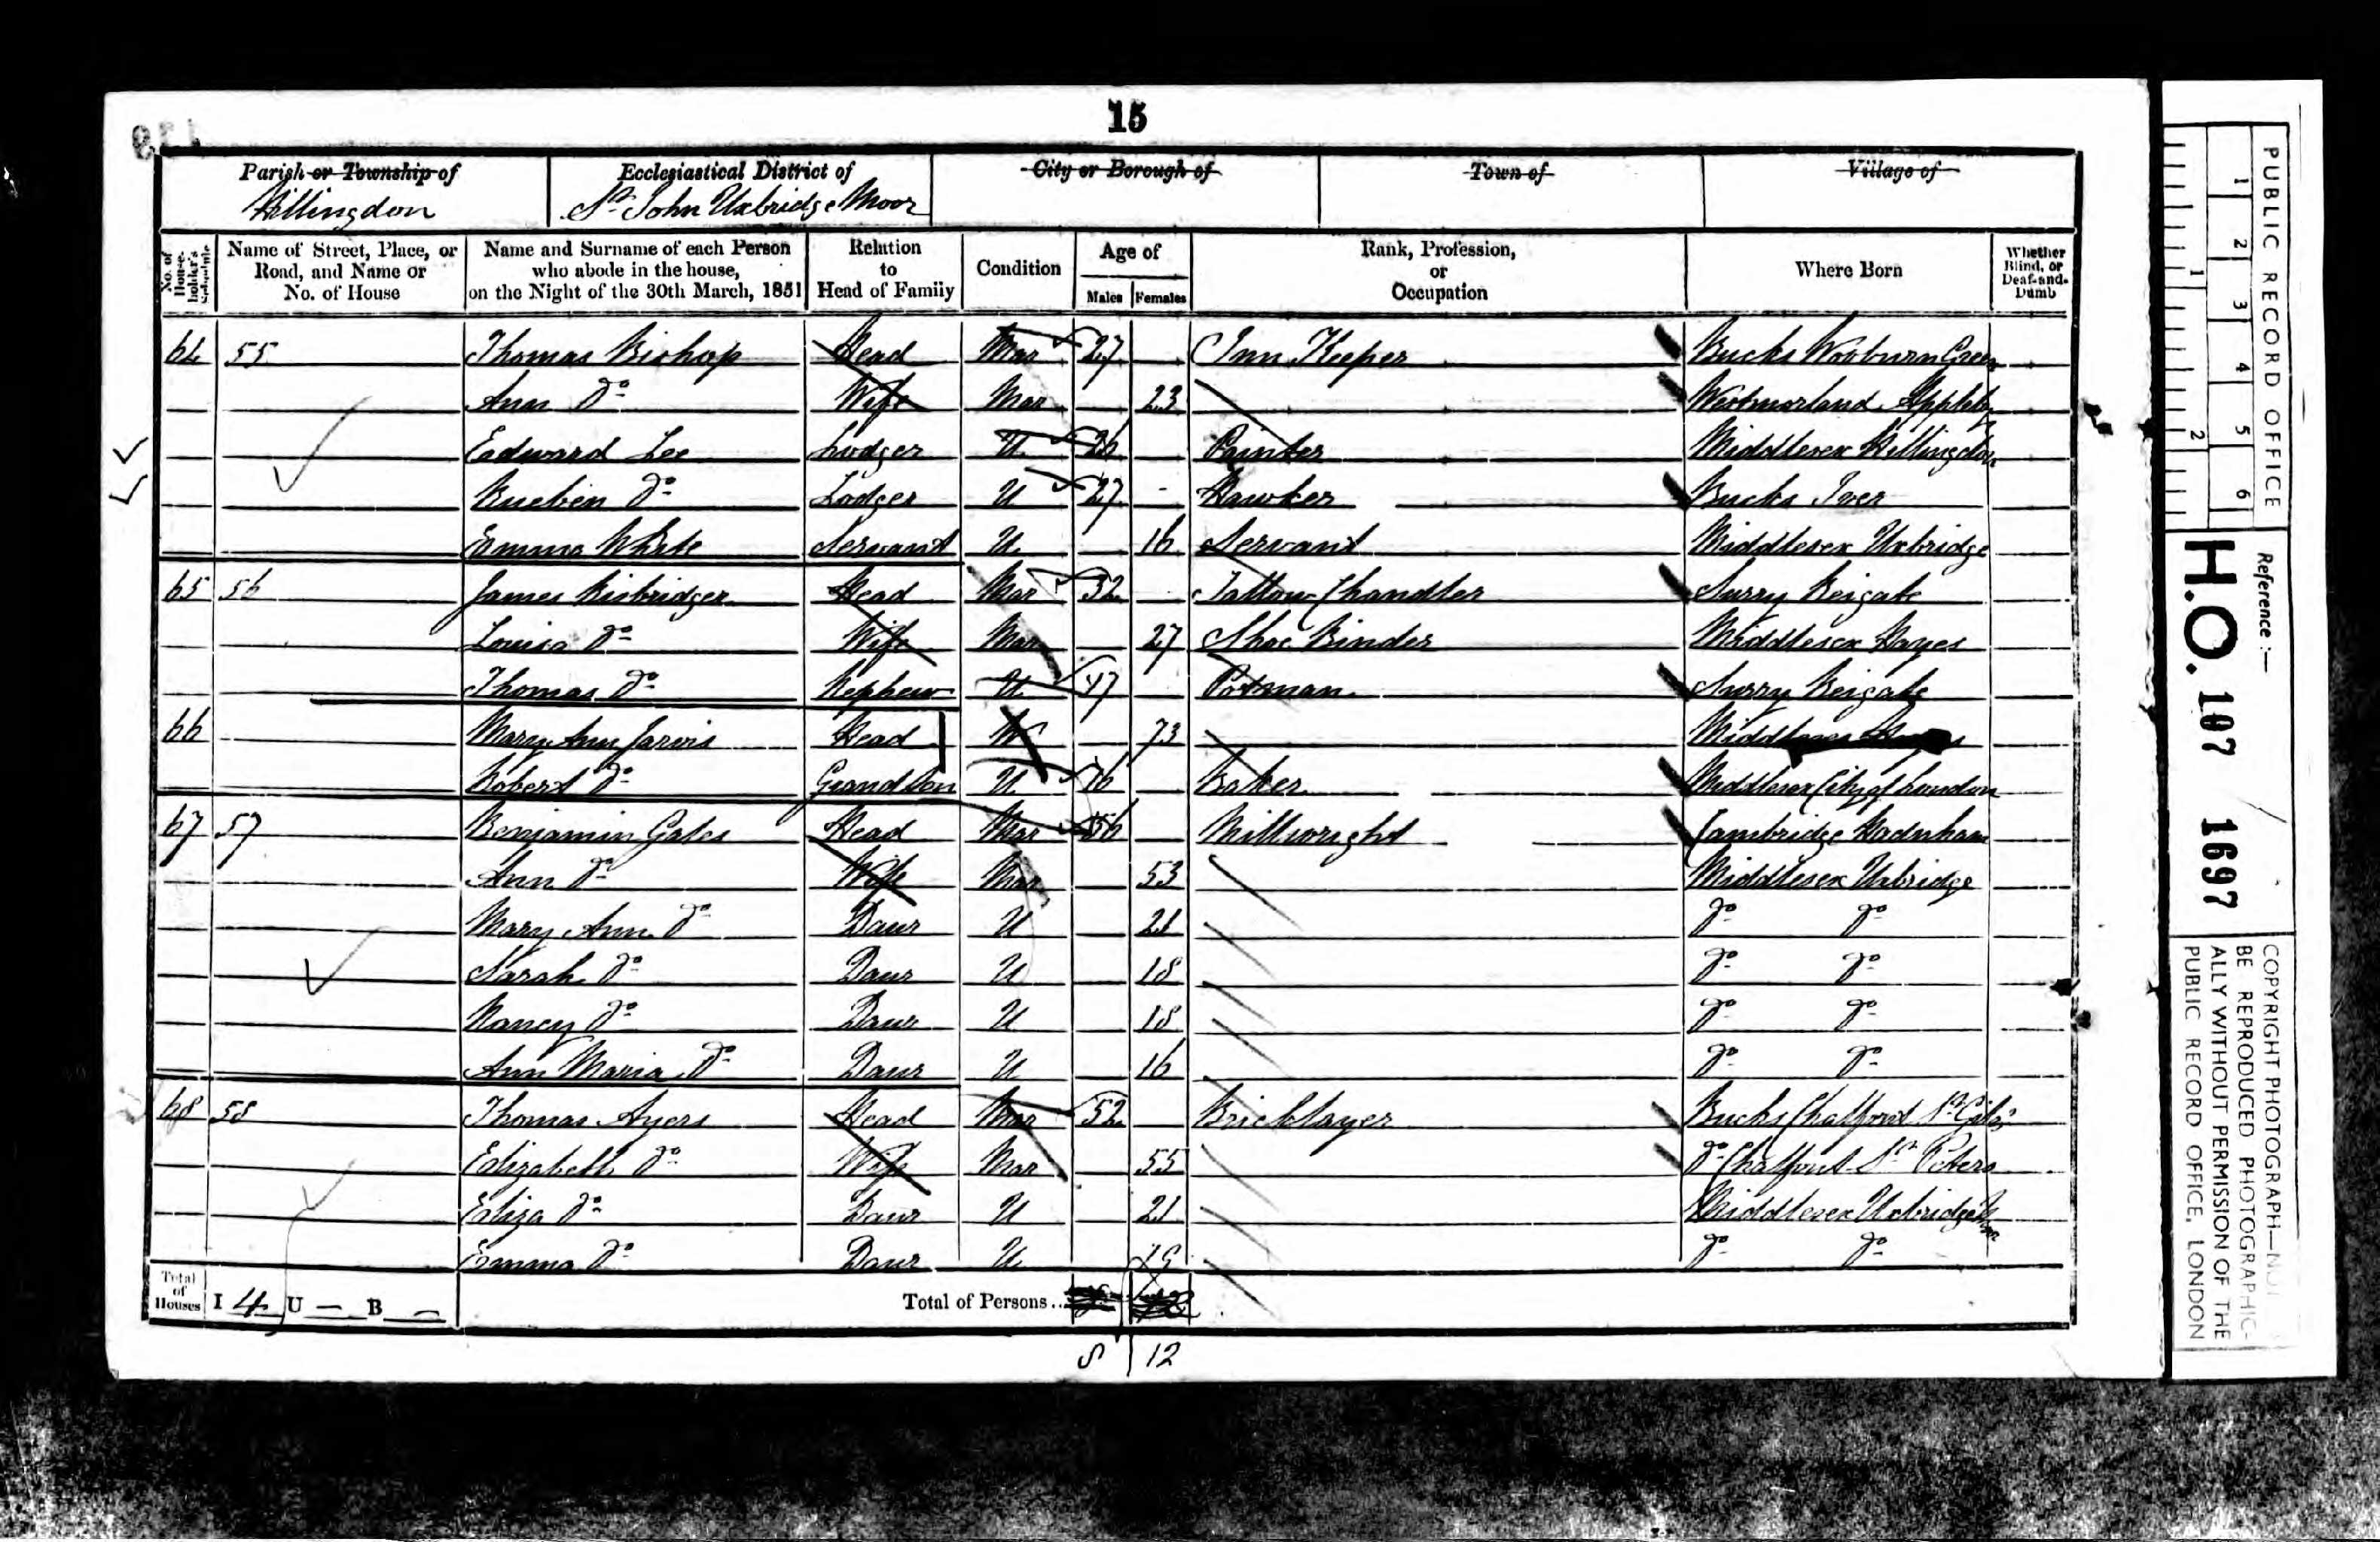 15
Parish or Township of
Hillingdon
Ecclesiastical District of
St. John Uxbridge Moor
City or Borough of
Town of
Village of
No. of House-holder's Schedule
Name of Street, Place, or Road, and Name or No. of House
Name and Surname of each Person who abode in the house, on the Night of the 30th March, 1851
Relation to Head of Family
Condition
Age of
Males Females
Rank, Profession, or Occupation
Where Born
Whether Blind, or Deaf-and-Dumb
64 55 Thomas Bishop Head Mar 27 Inn Keeper Bucks Wooburn Green
Ann Do Wife Mar 23 Westmorland Appleby
Edward Lee Lodger U 26 Painter Middlesex Hillingdon
Rueben Do Lodger U 27 Hawker Bucks Iver
Emma White Servant U 16 Servant Middlesex Uxbridge
65 56 James Risbridger Head Mar 32 Tallow Chandler Surry Reigate
Louisa Do Wife Mar 27 Shoe Binder Middlesex Hayes
Thomas Do Nephew U 47 Potman Surry Reigate
66 Mary Ann Jarvis Head W 73 Middlesex
Robert Do Grandson U 16 Baker Middlesex City of London
67 57 Benjamin Gates Head Mar 56 Millwright Cambridge Hadnham
Ann Do Wife Mar 53 Middlesex Uxbridge
Mary Ann Do Daur U 21 Do Do
Sarah Do Daur U 18 Do Do
Nancy Do Daur U 18 Do Do
Ann Maria Do Daur U 16 Do Do
68 58 Thomas Ayers Head Mar 52 Bricklayer Bucks Chalfont St. Giles
Elizabeth Do Wife Mar 55 Do Chalfont St. Peters
Eliza Do Daur U 21 Middlesex Uxbridge
Emma Do Daur U Do Do
Total of Houses I 4 U — B —
Total of Persons..
8 12
PUBLIC RECORD OFFICE
1 2 3 4 5 6
1 2
Reference :—
H.O. 107 1697
COPYRIGHT PHOTOGRAPH—NOT
BE REPRODUCED PHOTOGRAPHIC-
ALLY WITHOUT PERMISSION OF THE
PUBLIC RECORD OFFICE, LONDON